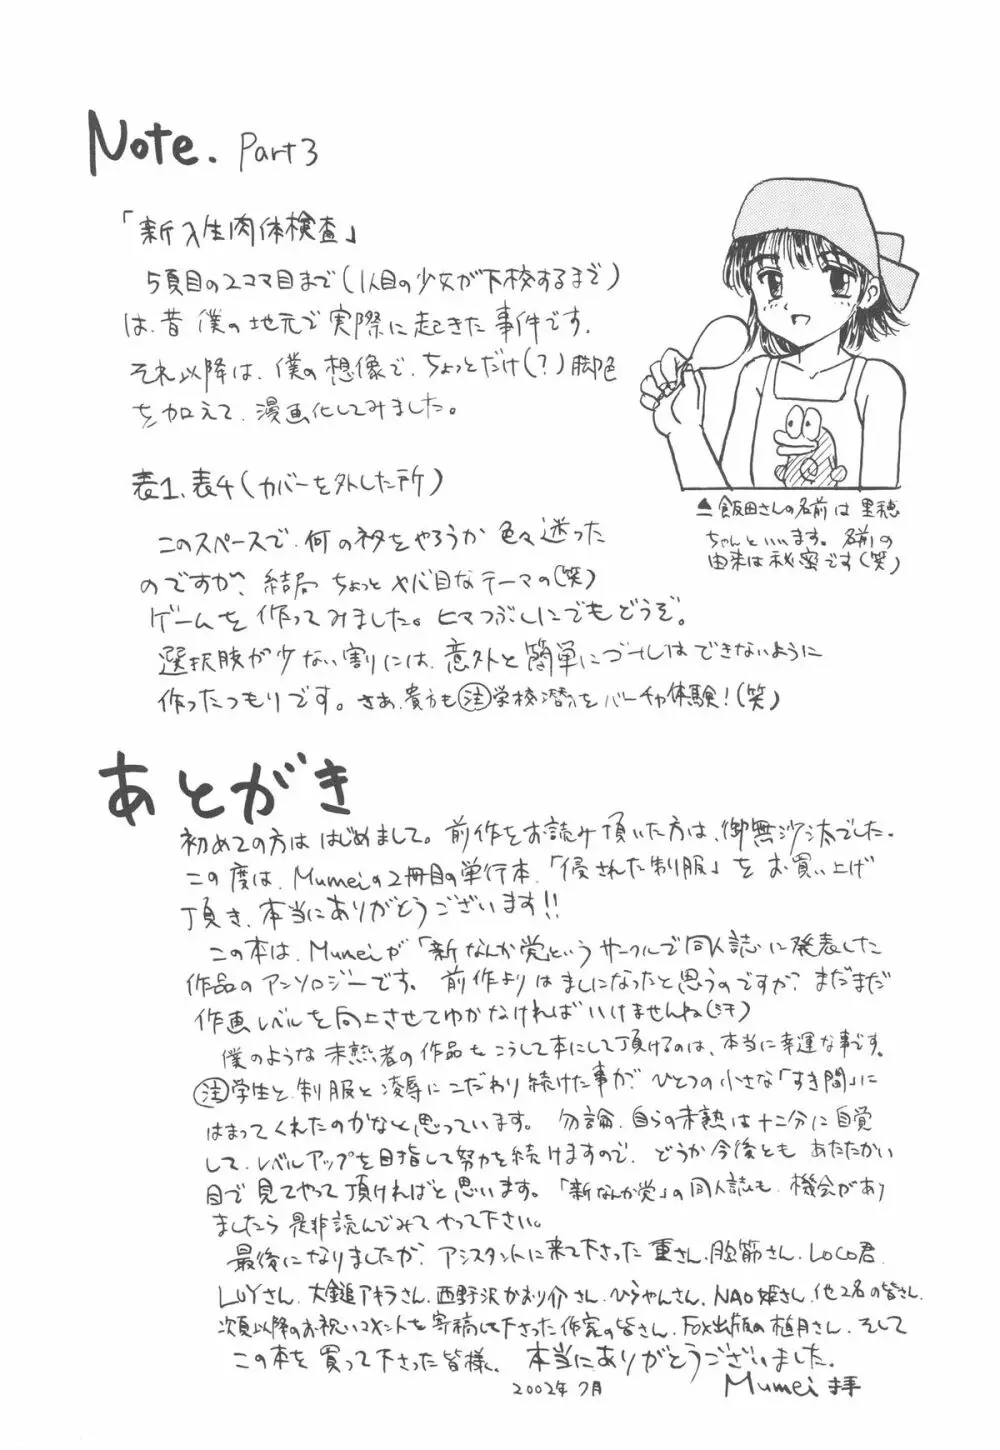 Note. Part3
「新入生肉体検査」
5頁目の2コマ目まで(1人目の少女が下校するまで)
は、昔 僕の地元で実際に起きた事件です。
それ以降は、僕の想像で、ちょっとだけ(?)脚色
を加えて、漫画化してみました。
▲飯田さんの名前は里穂
ちゃんといいます。名前の
由来は秘密です(笑)
表1、表4(カバーを外した所)
このスペースで、何のネタをやろうか色々迷った
のですが、結局ちょっとヤバ目なテーマの(笑)
ゲームを作ってみました。ヒマつぶしにでもどうぞ。
選択肢が少ない割りには、意外と簡単にゴールはできないように
作ったつもりです。さあ、貴方も㊟学校潜入をバーチャ体験!(笑)
あとがき
初めての方ははじめまして。前作をお読み頂いた方は、御無沙汰でした。
この度は、Mumeiの2冊目の単行本、「侵された制服」をお買い上げ
頂き、本当にありがとうございます!!
この本は、Mumeiが「新なんか党」というサークルで同人誌に発表した
作品のアンソロジーです。前作よりはましになったと思うのですが、まだまだ
作画レベルを向上させてゆかなければいけませんね(汗)
僕のような未熟者の作品をこうして本にして頂けるのは、本当に幸運な事です。
㊟学生と、制服と凌辱にこだわり続けた事が、ひとつの小さな「すき間」に
はまってくれたのかなと思っています。勿論、自らの未熟は十二分に自覚
して、レベルアップを目指して努力を続けますので、どうか今後とも あたたかい
目で見てやって頂ければと思います。「新なんか党」の同人誌も、機会があり
ましたら是非読んでみてやって下さい。
最後になりましたが、アシスタントに来て下さった重さん、腔筋さん、LOCO君、
LUYさん、大鎚アキラさん、西野沢かおり介さん、ひらやんさん、NAO姫さん、他2名の皆さん、
次頁以降のお祝いコメントを寄稿して下さった作家の皆さん、FOX出版の植月さん、そして
この本を買って下さった皆様、本当にありがとうございました。
2002年7月 Mumei拝